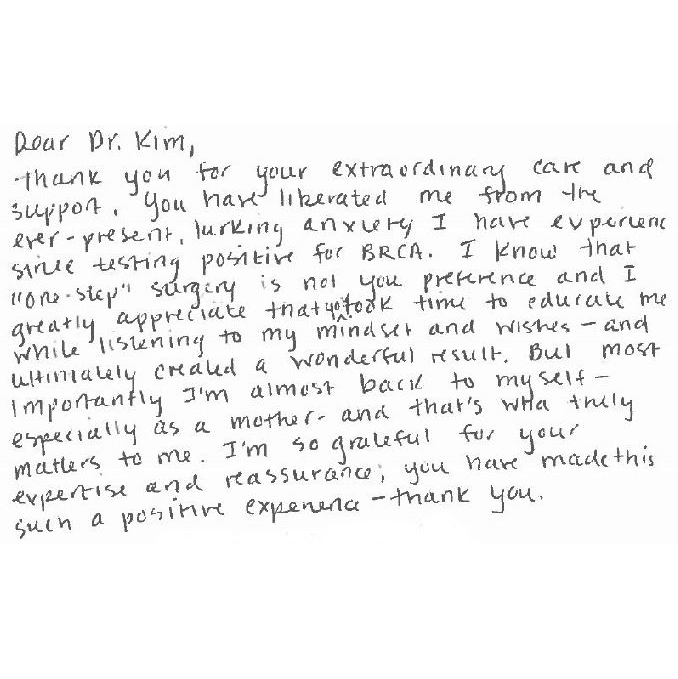 Dear Dr. Kim,
thank you for your extraordinary care and
support. You have liberated me from the
ever-present, lurking anxiety I have experienc
since testing positive for BRCA. I know that
"one-step" surgery is not you preference and I
greatly appreciate that you took time to educate me
while listening to my mindset and wishes - and
ultimately created a wonderful result. But most
importantly I'm almost back to myself -
especially as a mother - and that's wha truly
matters to me. I'm so grateful for your
expertise and reassurance; you have made this
such a positive experience - thank you.